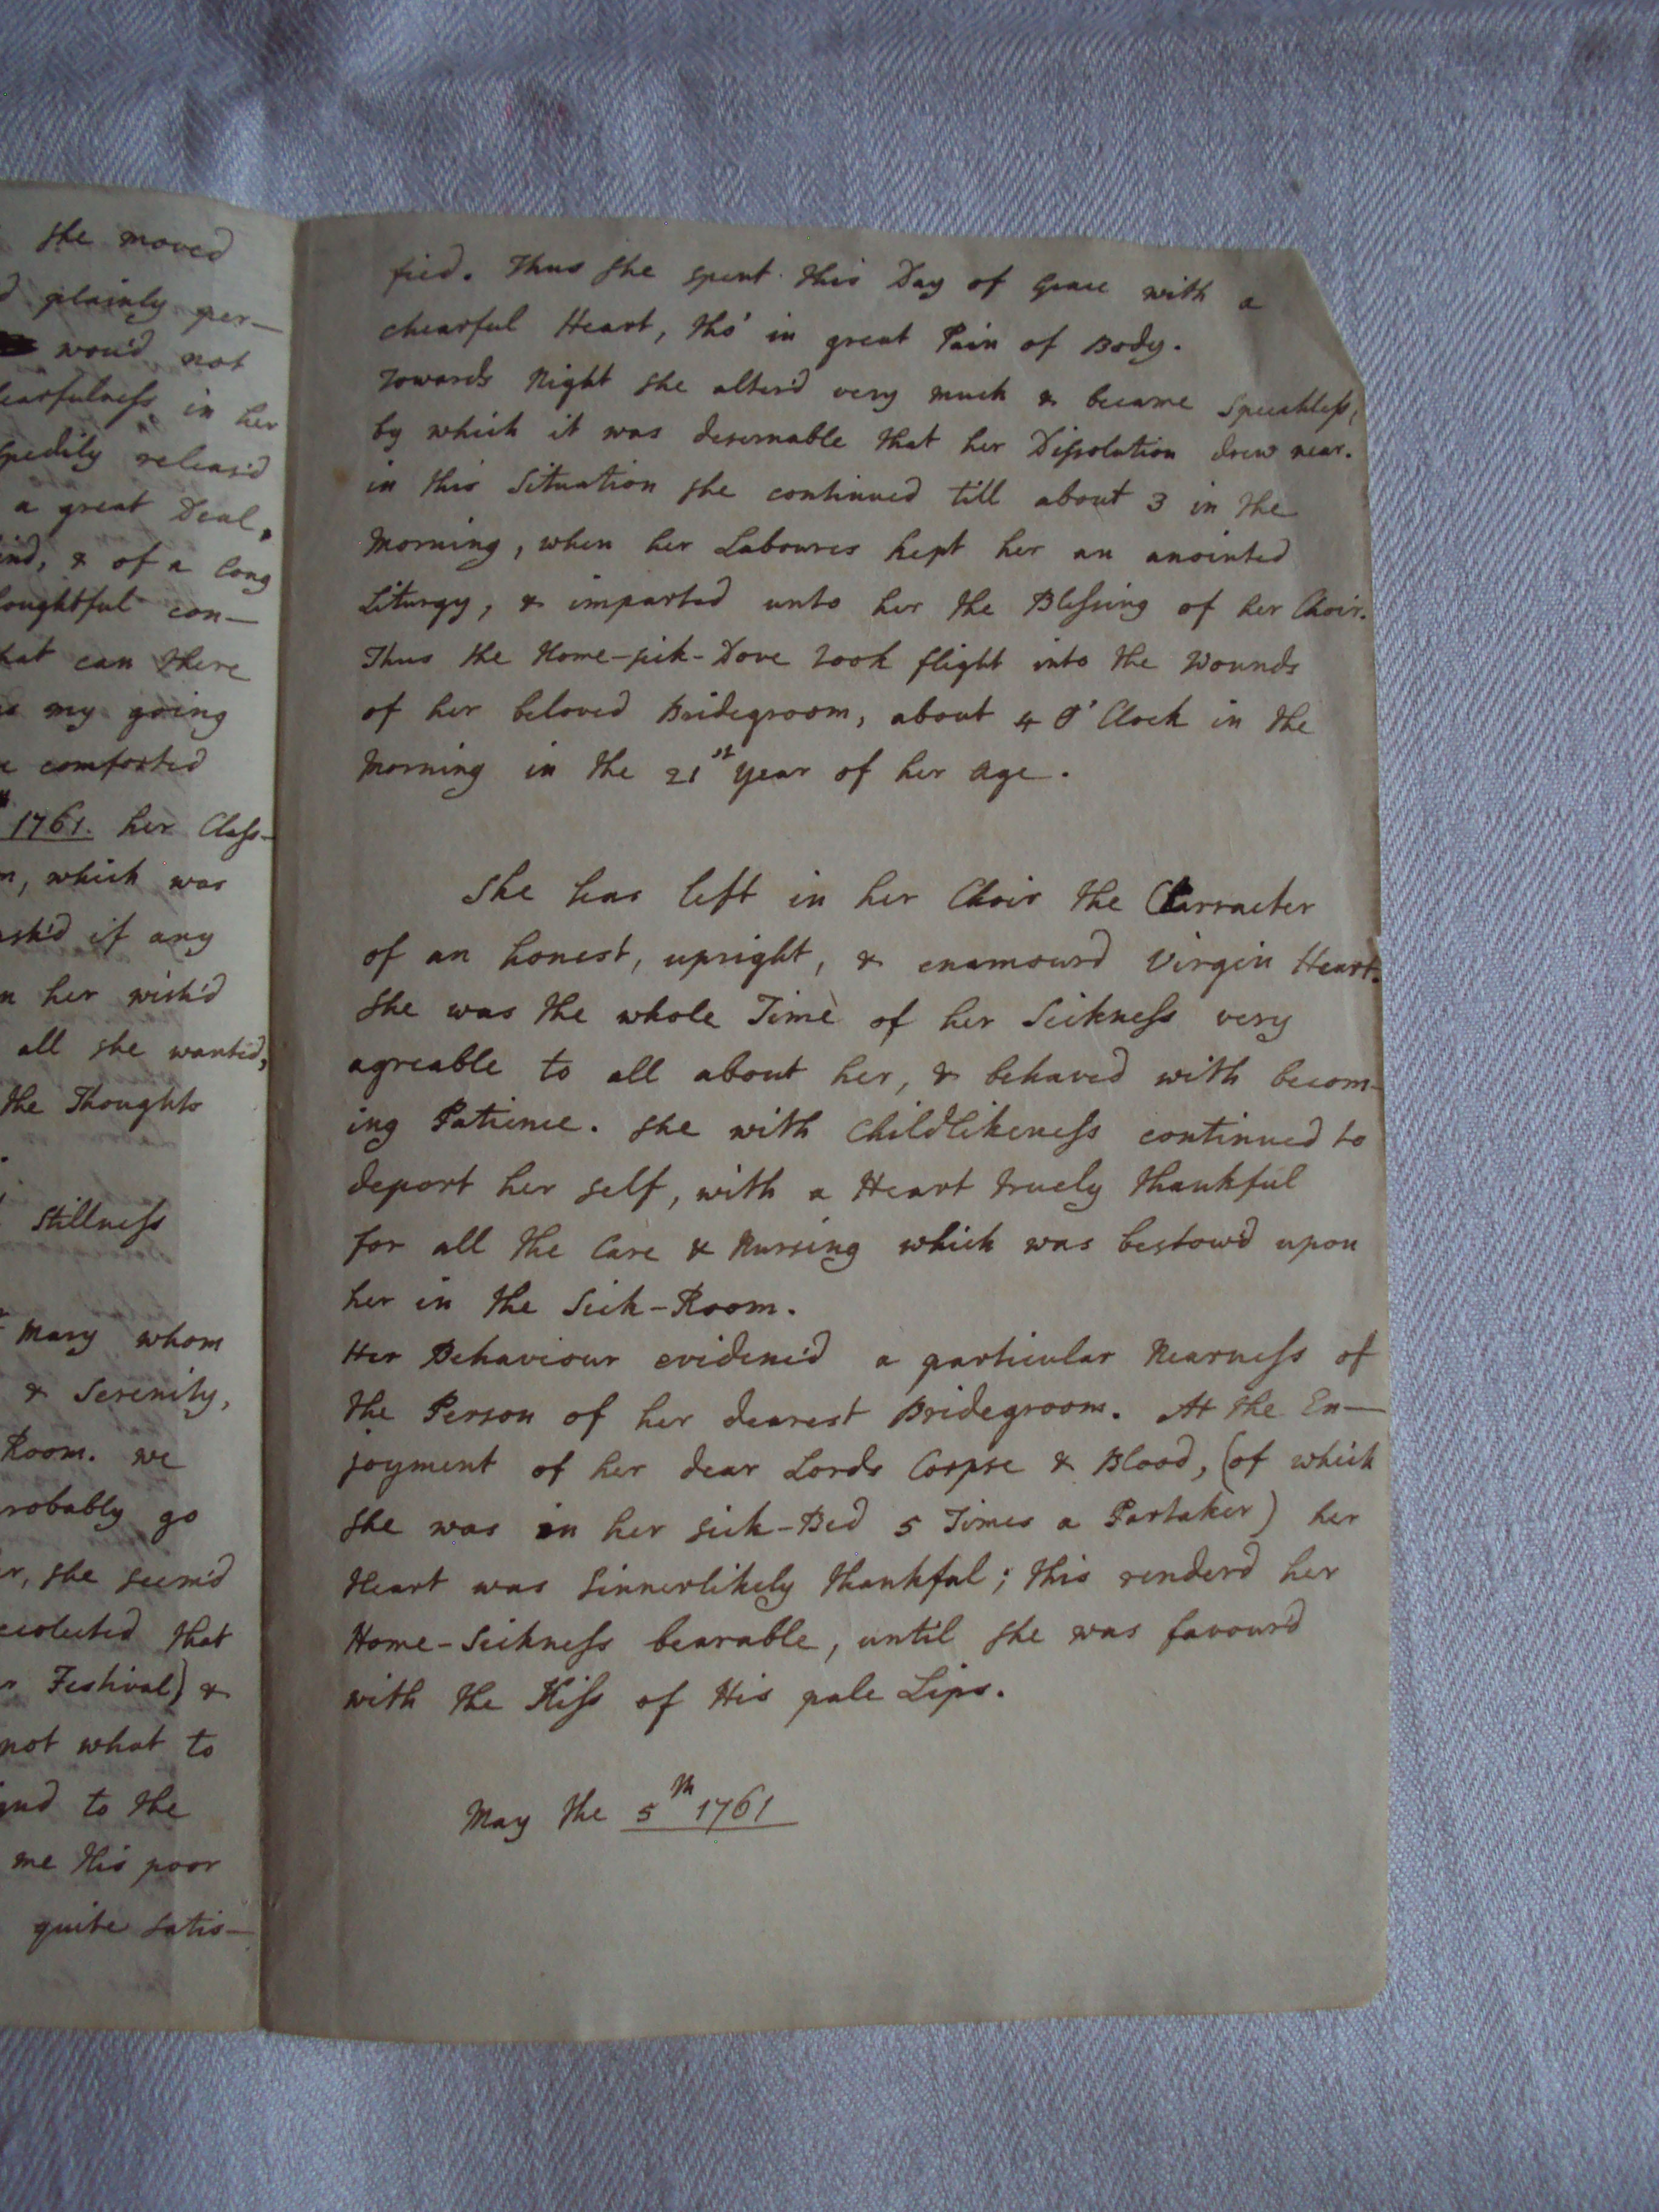 she moved
plainly per-
wou'd not
in her
releas'd
a great Deal,
& of a long
con-
can there
my going
comforted
1761. her Class-
which was
if any
her wish'd
all she wanted,
the Thoughts
Stillness
Mary whom
& Serenity,
Room. we
go
she seem'd
that
Festival) &
not what to
to the
me this poor
quite satis-
fied. Thus she spent this Day of Grace with a
chearful Heart, tho' in great Pain of Body.
Towards Night she alter'd very much & became Speechless,
by which it was desernable that her Dissolution drew near.
in this Situation she continued till about 3 in the
Morning, when her Laboures kept her an anointed
Liturgy, & imparted unto her the Blessing of her Choir.
Thus the Home-sick-Dove took flight into the Wounds
of her beloved Bridegroom, about 4 O'Clock in the
Morning in the 21st year of her Age.
She has left in her Choir the Charracter
of an honest, upright, & enamourd Virgin Heart.
She was the whole Time of her Sickness very
agreable to all about her, & behaved with becom-
ing Patience. She with Childlikeness continued to
deport her self, with a Heart truely thankful
for all the Care & Nursing which was bestow'd upon
her in the Sick-Room.
Her Behaviour evidenc'd a particular Nearness of
the Person of her dearest Bridegroom. At the En-
joyment of her dear Lords Corpse & Blood, (of which
she was in her sick-Bed 5 Times a Partaker) her
Heart was Sinnerlikely thankful; this renderd her
Home-Sickness bearable, until she was favour'd
with the Kiss of His pale Lips.
May the 5th 1761